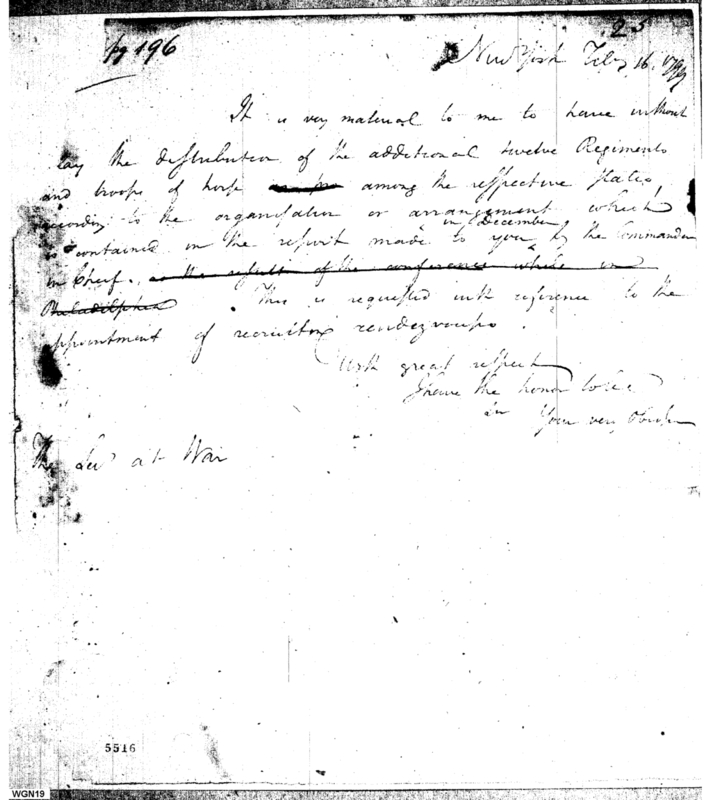 25
pg 196
New York Feby 16. 1799
It is very material to me to have without
lay the distribution of the additional twelve Regiments
and troops of horse among the respective states,
according to the organisation or arrangement which
in December
is contained in the report made to you by the Commander
in Chief. as the result of the conference while in
Philadelphia. This is requested with reference to the
appointment of recruiting rendezvouses.
With great respect
I have the honor to be
Your very Obedr
The Secy at War
5516
WGN19